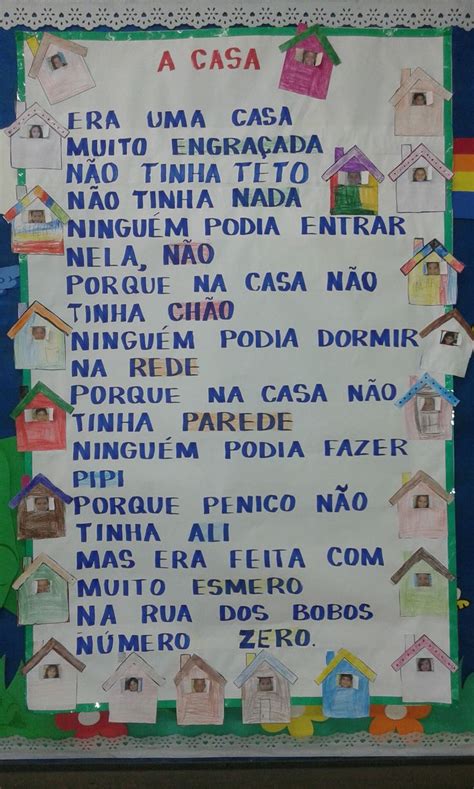 A CASA
ERA UMA CASA
MUITO ENGRAÇADA
NÃO TINHA TETO
NÃO TINHA NADA
NINGUÉM PODIA ENTRAR
NELA, NÃO
PORQUE NA CASA NÃO
TINHA CHÃO
NINGUÉM PODIA DORMIR
NA REDE
PORQUE NA CASA NÃO
TINHA PAREDE
NINGUÉM PODIA FAZER
PIPI
PORQUE PENICO NÃO
TINHA ALI
MAS ERA FEITA COM
MUITO ESMERO
NA RUA DOS BOBOS
NÚMERO ZERO.